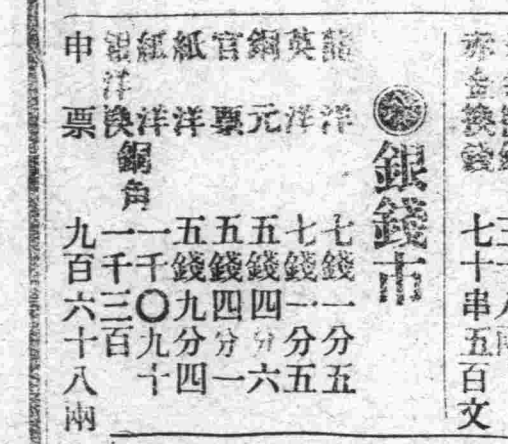 赤金換錢 七十串五百文
銀錢市
龍洋 七錢一分五
英洋 七錢一分五
銅元 五錢四分六
官票 五錢四分一
紙洋 五錢九分四
紅洋 一千〇九十
銀洋換銅角 一千三百
申票 九百六十八兩